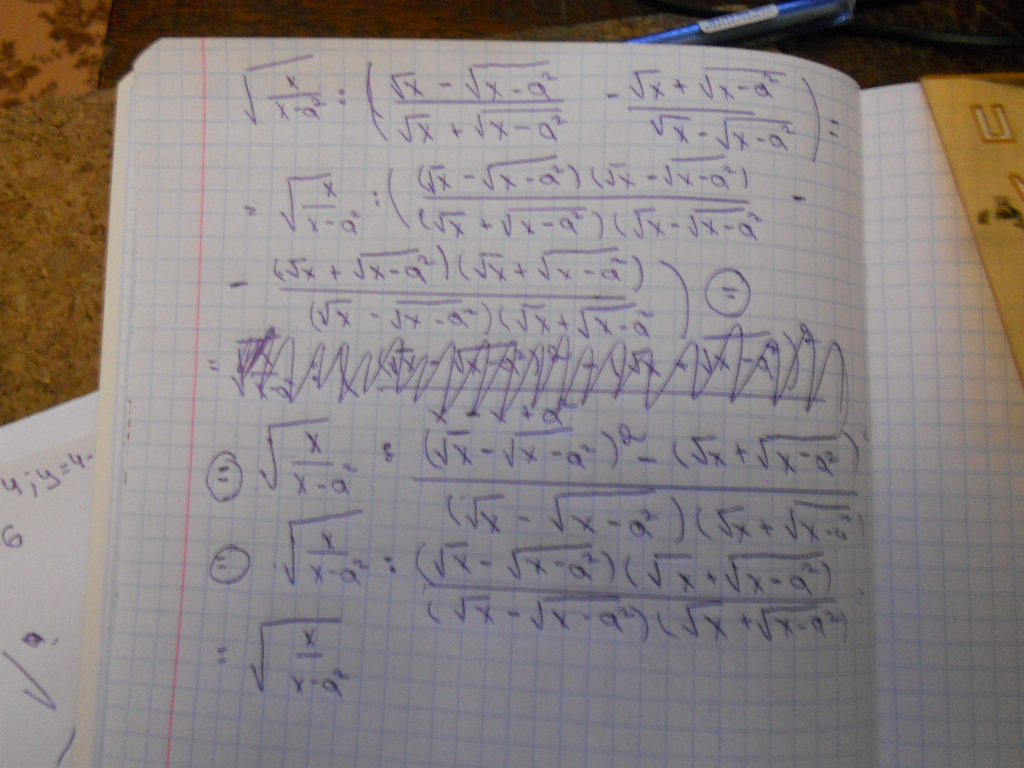 √(x/(x-a²)) : ((√x - √(x-a²))/(√x + √(x-a²)) - (√x + √(x-a²))/(√x - √(x-a²))) =
= √(x/(x-a²)) : ((√x - √(x-a²))(√x - √(x-a²))/(√x + √(x-a²))(√x - √(x-a²)) -
- (√x + √(x-a²))(√x + √(x-a²))/(√x - √(x-a²))(√x + √(x-a²))) =
x - x + a²
= √(x/(x-a²)) : ((√x - √(x-a²))² - (√x + √(x-a²))/(√x - √(x-a²))(√x + √(x-a²))
= √(x/(x-a²)) : (√x - √(x-a²))(√x + √(x-a²))/(√x - √(x-a²))(√x + √(x-a²))
= √(x/(x-a²))
4; y=4-
6